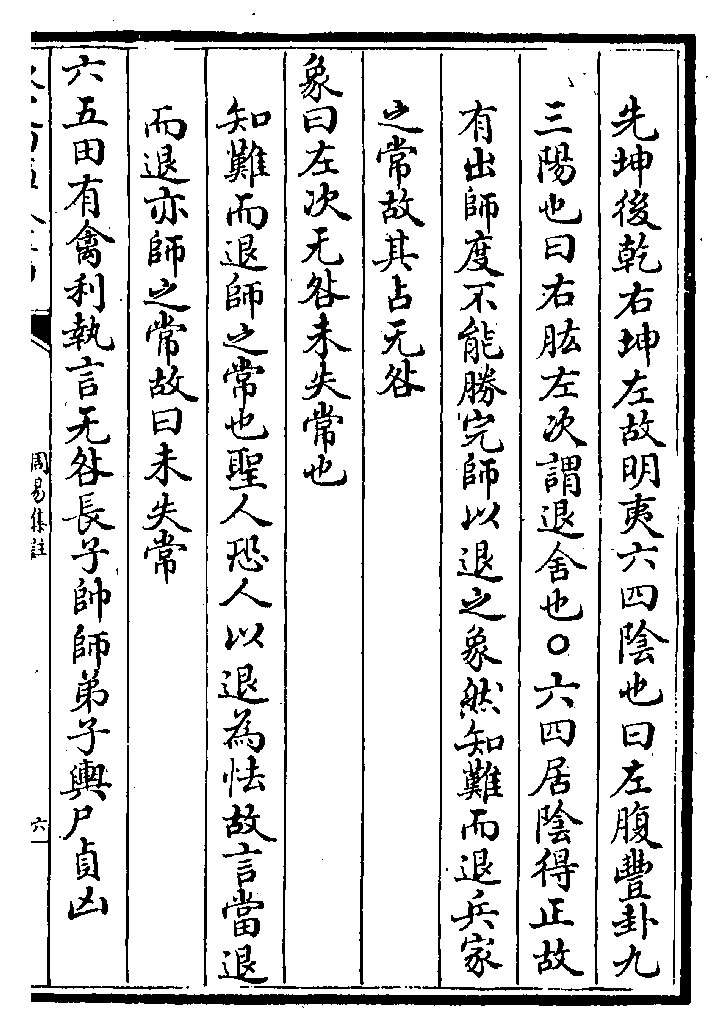 先坤後乾右坤左故明夷六四陰也曰左腹豐卦九
三陽也曰右肱左次謂退舍也○六四居陰得正故
有出師度不能勝完師以退之象然知難而退兵家
之常故其占无咎
象曰左次无咎未失常也
知難而退師之常也聖人恐人以退為怯故言當退
而退亦師之常故曰未失常
六五田有禽利執言无咎長子帥師弟子輿尸貞凶
周易集註
六